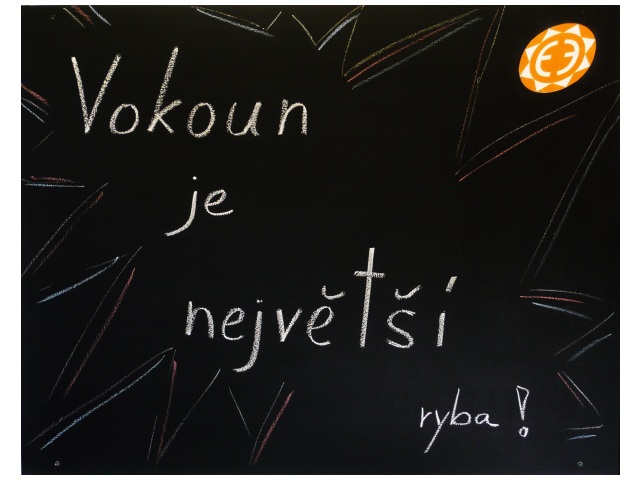 Vokoun
je
největší
ryba!